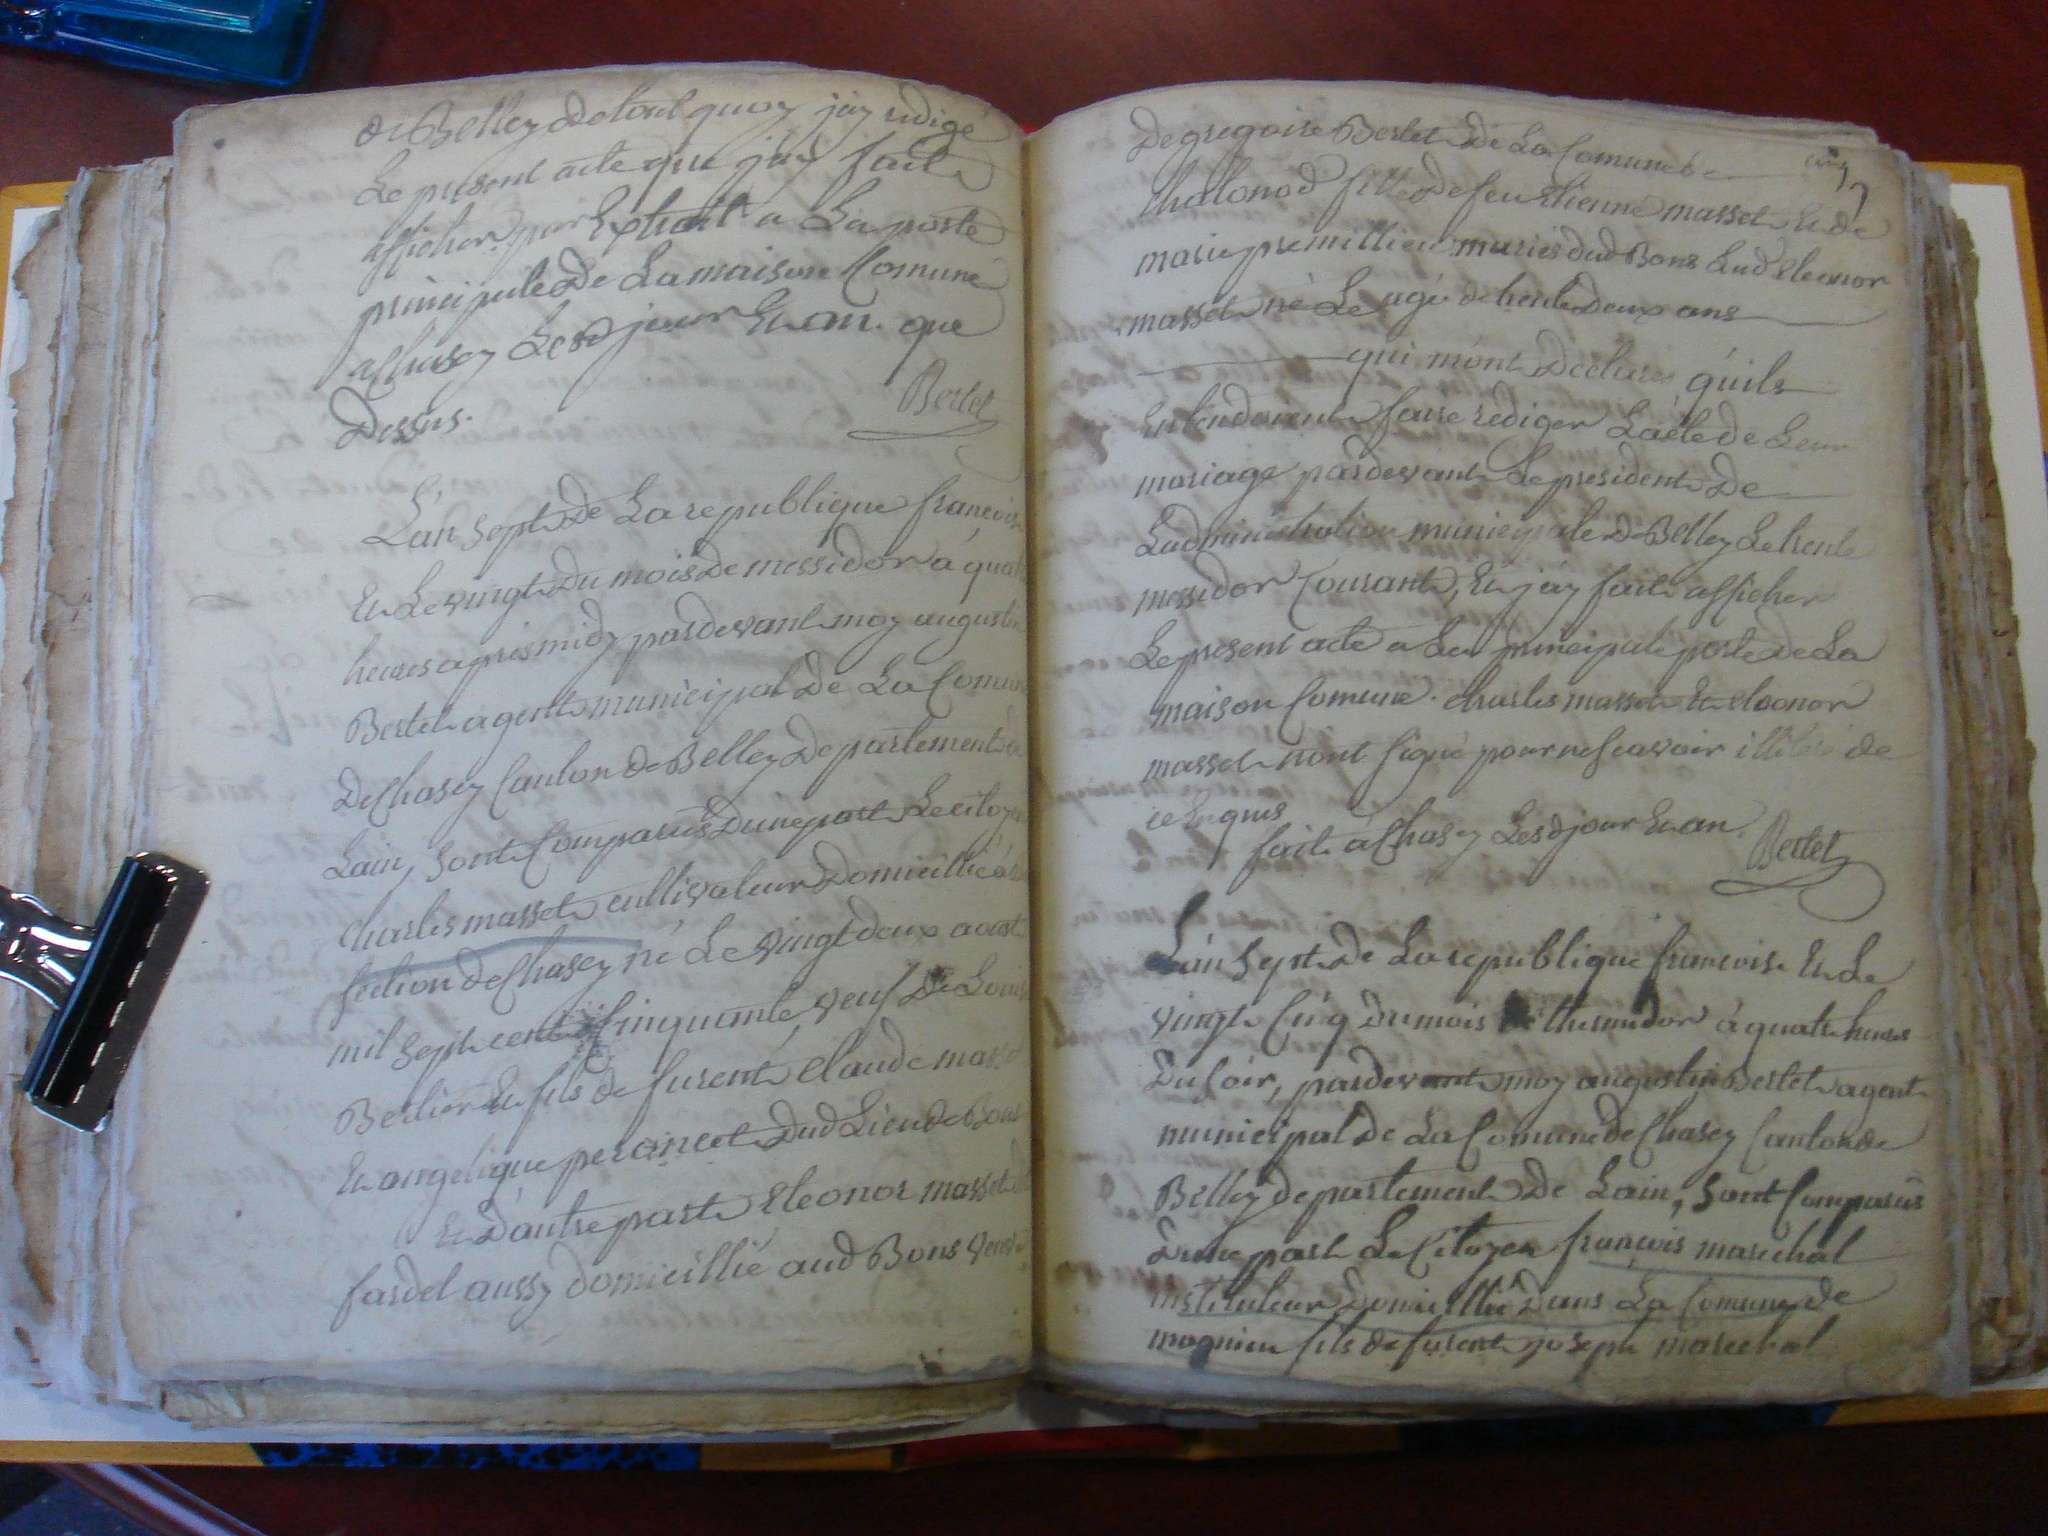 de Belley de tout quoy j'ay redigé
Le present acte que j'ay fait
afficher par Extrait a La porte
principale de La maison Comune
a Chasey Lesd jour Et an que
Dessus.
Bertet
L'an sept de La republique françoise
Et Le vingt Du mois De messidor à quatre
heures apres midy pardevant moy augustin
Bertet agent municipal De La Comune
De Chasey Canton de Belley Departement de
Lain, sont Comparus Dune part Le citoyen
Charles masset cultivateur Domicillié à
section de Chasey né Le vingt deux aoust
mil sept cent Cinquante, veuf De Louise
Berlier Et fils de furent Claude masset
Et angelique peroncet Dud Lieu de Bons
Et D'autre part Eleonor masset
fardel aussy domicillié aud Bons veuve
De gregoire Bertet De La Comune de
Chalonod fille de feu Etienne masset Et de
marie premillieu mariés dud Bons Lad Eleonor
masset né Le agé de trente deux ans
qui m'ont Déclarés qu'ils
Entendoient faire rediger L'acte de Leur
mariage pardevant Le president De
L'administration municipale de Belley Le trente
messidor Courant, Et j'ay fait afficher
Le present acte a La principale porte de La
maison Comune. Charles masset Et eleonor
masset n'ont signé pour ne scavoir illiteré de
ce Enquis
fait a Chasey Lesd jour Et an.
Bertet
L'an sept De La republique francoise Et Le
vingt Cinq Du mois de thermidor à quatre heures
Du soir, pardevant moy augustin Bertet agent
municipal De La Comune de Chasey Canton de
Belley departement De Lain, sont Comparus
D'une part Le Citoyen françois marechal
instituteur Domicillié Dans La Comune de
magnieu fils de furent joseph marechal